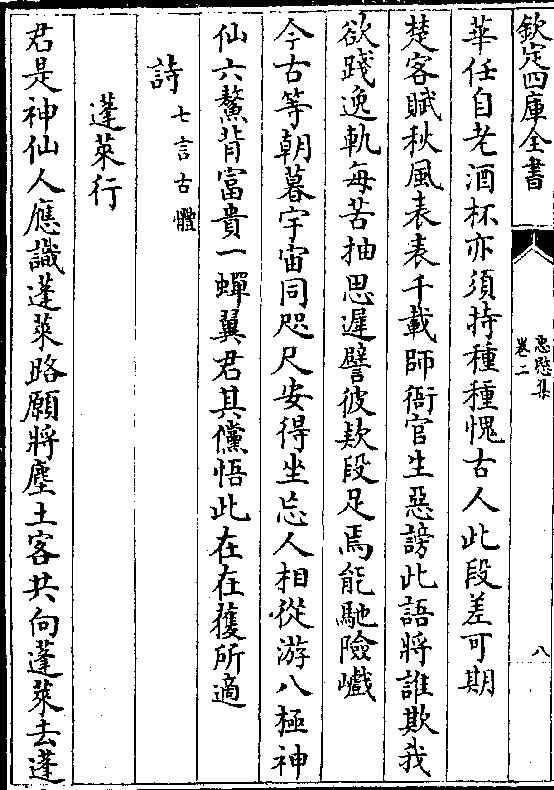 欽定四庫全書
惠隱集
卷二
八
華任自老酒杯亦須持種種愧古人此段差可期
楚客賦秋風表表千載師衙官生惡謗此語將誰欺我
欲踐逸軌每苦抽思遲譬彼欵段足焉能馳險巇
今古等朝暮宇宙同咫尺安得坐忘人相從游八極神
仙六鰲背富貴一蟬翼君其儻悟此在在獲所適
詩七言古體
蓬萊行
君是神仙人應識蓬萊路願將塵土客共向蓬萊去蓬